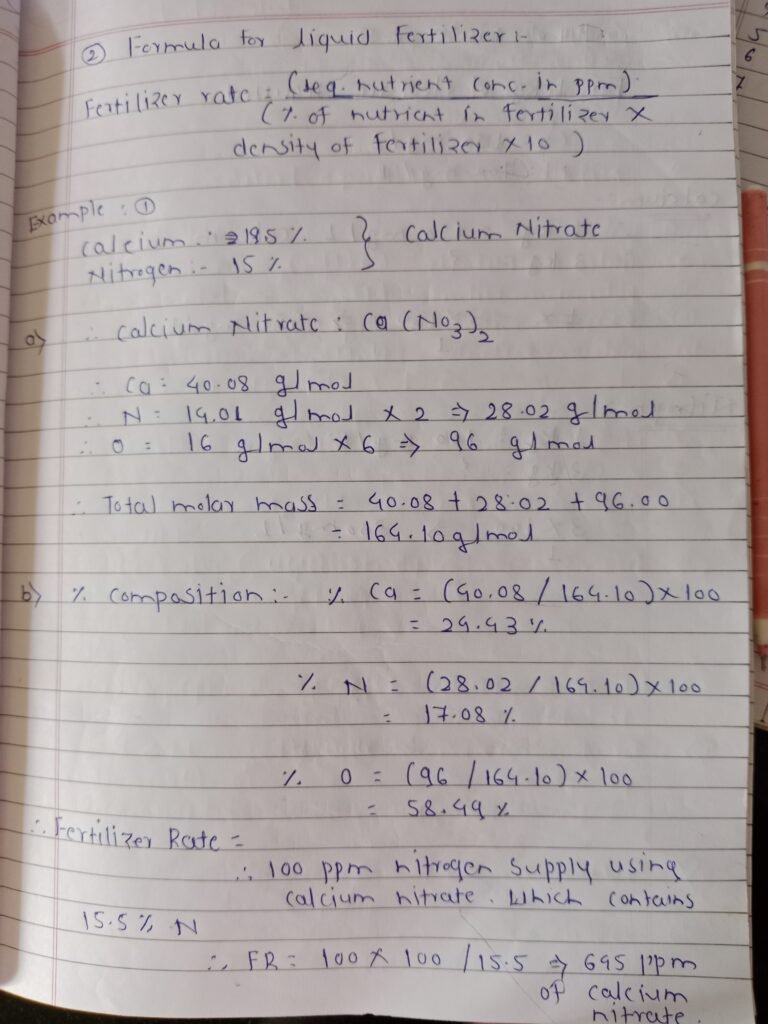 ② Formula for liquid Fertilizer :-
Fertilizer rate = (req. nutrient conc. in ppm)
(% of nutrient in fertilizer ×
density of fertilizer ×10 )
Example : ①
Calcium :- 18.5 % } Calcium Nitrate
Nitrogen :- 15 %
a) ∴ Calcium Nitrate : Ca (NO3)2
∴ Ca = 40.08 g/mol
∴ N = 14.01 g/mol × 2 ⇒ 28.02 g/mol
∴ O = 16 g/mol × 6 ⇒ 96 g/mol
∴ Total molar mass = 40.08 + 28.02 + 96.00
= 164.10 g/mol
b) % Composition :- % Ca = (40.08 / 164.10) × 100
= 24.43 %
% N = (28.02 / 164.10) × 100
= 17.08 %
% O = (96 / 164.10) × 100
= 58.49 %
∴ Fertilizer Rate =
∴ 100 ppm nitrogen supply using
calcium nitrate. Which contains
15.5 % N
∴ FR = 100 × 100 / 15.5 ⇒ 645 ppm
of calcium
nitrate.
5
6
7